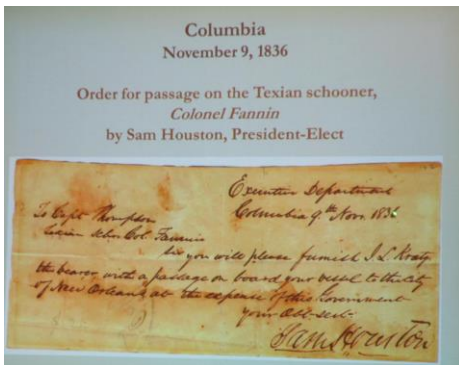 Columbia
November 9, 1836
Order for passage on the Texian schooner,
Colonel Fannin
by Sam Houston, President-Elect
Executive Department
Columbia 9th Nov. 1836
To Capt Thompson
Texian Schr Col. Fannin
Sir you will please furnish J. L.
the bearer with a passage on board your vessel to the City
of New Orleans at the expense of this Government
your Obt. Sevt.
Sam Houston